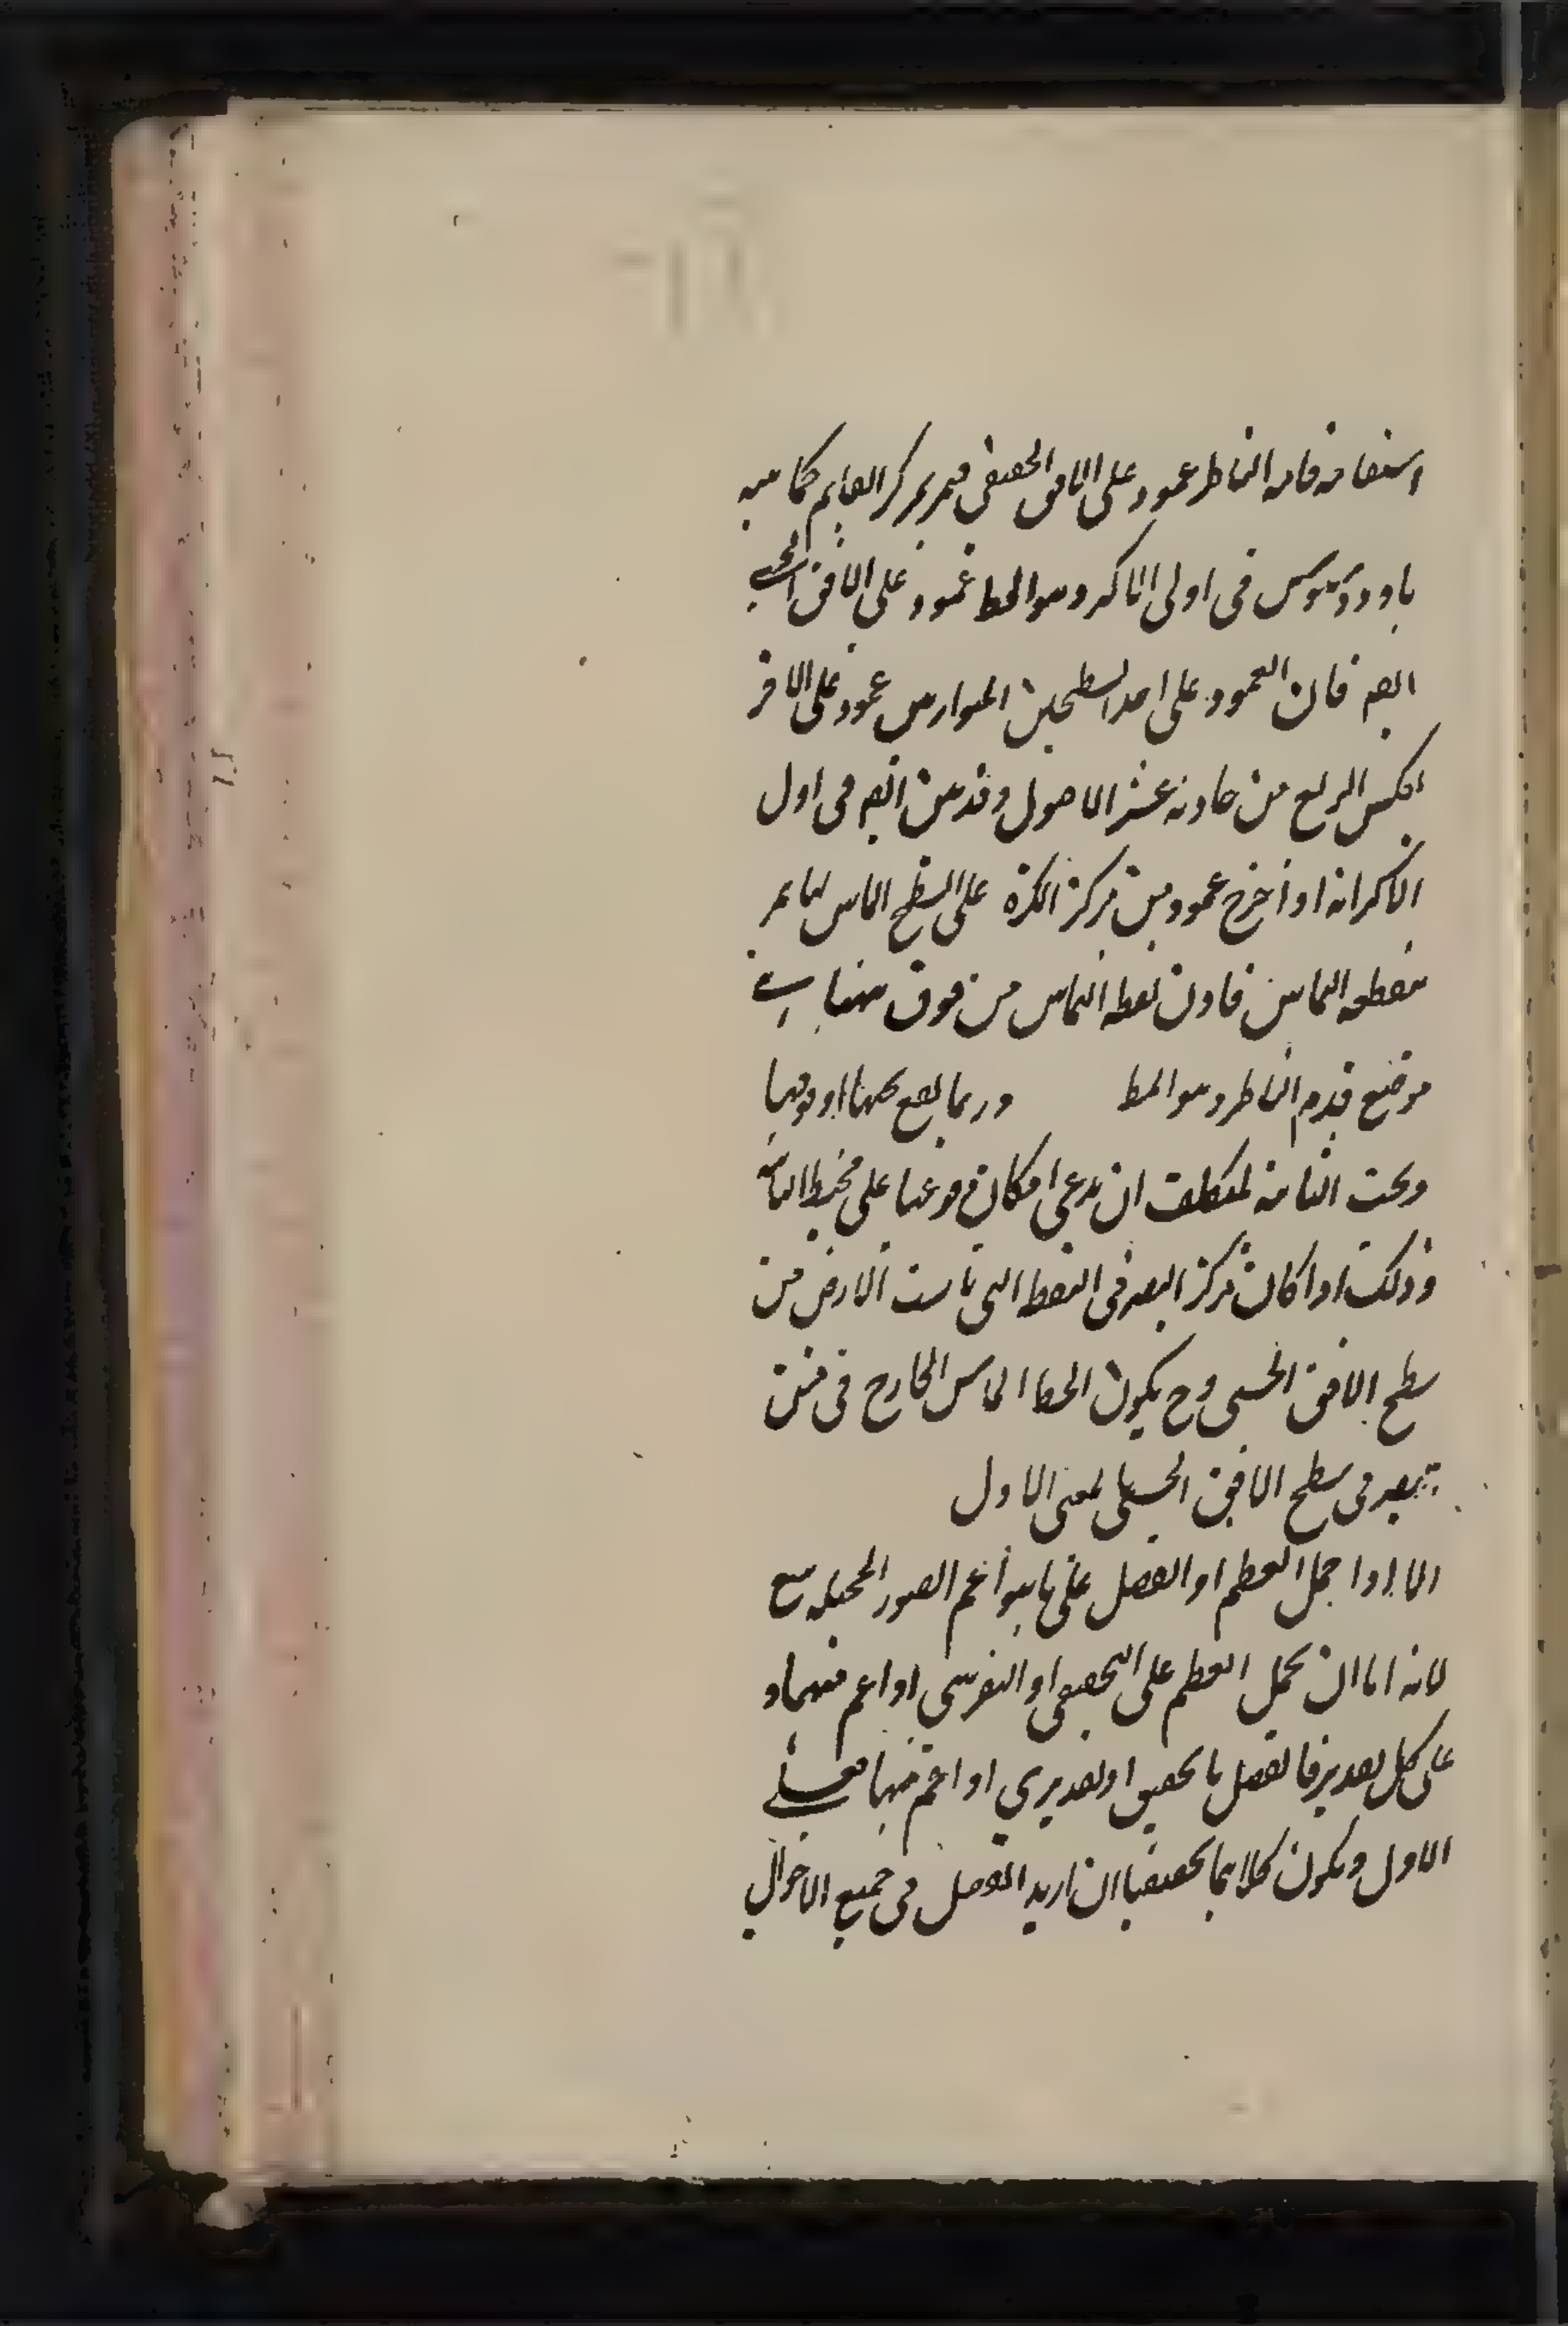 استقامة قامة الناظر عمود على الافق الحقيقي فيمر بمركز العالم كما بينه
ثاوذوسيوس في اولى الاكر وهو ايضا عمود على الافق الحسي
ايضا فان العمود على احد السطحين المتوازيين عمود على الاخر
بعكس الرابع من حادية عشر الاصول وقد بين ايضا في اول
الاكر انه اذا خرج عمود من مركز الكرة على السطح المماس لها يمر
بنقطة التماس فاذن نقطة التماس من فوق
موضع قدم الناظر وهو المط وربما يقع تحتها او فوقها
وتحت الثامنة لمتكلف ان يدعي امكان وقوعها على محيط الثامنة
وذلك اذا كان مركز البصر في النقطة التي ماست الارض من
سطح الافق الحسي وح يكون الخط المماس الخارج في
البصر في سطح الافق الحسي بالمعنى الاول
الا اذا حمل العظم او الفصل على ما هو اعم الصور المحتملة تسع
لانه اما ان يحمل العظم على التحقيقي او التقريبي او اعم منهما و
على كل تقدير فالفصل ما تحقيقي او تقديري او اعم منهما فعلى
الاول ويكون كلاهما تحقيقيا ان اريد الفصل في جميع الاحوال